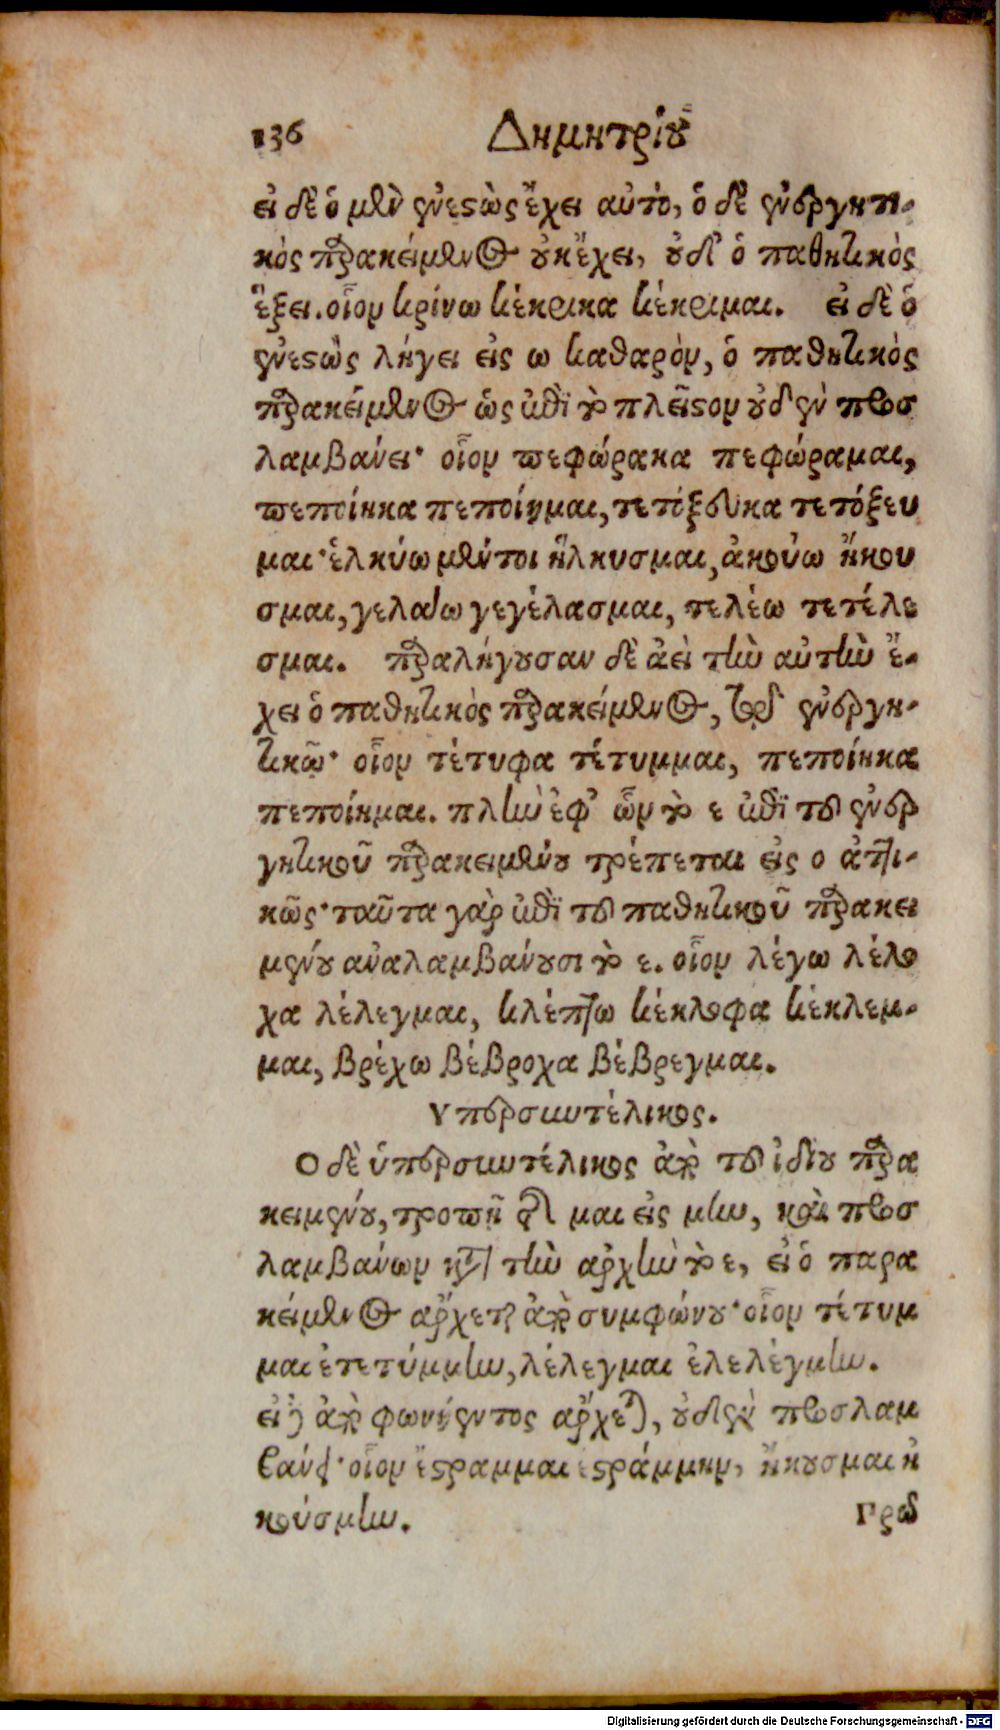 136 Δημητρίου
εἰ δὲ ὁ μὲν ἐνεστὼς ἔχει αὐτὸ, ὁ δὲ ἐνεργητι-
κὸς παρακείμενος οὐκ ἔχει, οὐδ' ὁ παθητικὸς
ἕξει. οἷον κρίνω κέκρικα κέκριμαι. εἰ δὲ ὁ
ἐνεστὼς λήγει εἰς ω καθαρὸν, ὁ παθητικὸς
παρακείμενος ὡς ἐπὶ τὸ πλεῖστον οὐδὲν προσ
λαμβάνει· οἷον πεφώρακα πεφώραμαι,
πεποίηκα πεποίημαι, τετόξευκα τετόξευ
μαι· ἑλκύω μέντοι ἥλκυσμαι, ἀκούω ἤκου
σμαι, γελάω γεγέλασμαι, τελέω τετέλε
σμαι. παραλήγουσαν δὲ ἀεὶ τὴν αὐτὴν ἔ-
χει ὁ παθητικὸς παρακείμενος, τῷ ἐνεργη-
τικῷ· οἷον τέτυφα τέτυμμαι, πεποίηκα
πεποίημαι. πλὴν ἐφ' ὧν τὸ ε ἐπὶ τοῦ ἐνερ
γητικοῦ παρακειμένου τρέπεται εἰς ο ἀττι-
κῶς· ταῦτα γὰρ ἐπὶ τοῦ παθητικοῦ παρακει
μένου ἀναλαμβάνουσι τὸ ε. οἷον λέγω λέλο
χα λέλεγμαι, κλέπτω κέκλοφα κέκλεμ-
μαι, βρέχω βέβροχα βέβρεγμαι.
Υπερσυντέλικος.
Ο δὲ ὑπερσυντέλικος ἀπὸ τοῦ ἰδίου παρα
κειμένου, τροπῇ τῆς μαι εἰς μην, καὶ προσ
λαμβάνων κατὰ τὴν ἀρχὴν τὸ ε, εἰ ὁ παρα
κείμενος ἄρχεται ἀπὸ συμφώνου· οἷον τέτυμ
μαι ἐτετύμμην, λέλεγμαι ἐλελέγμην.
εἰ δὲ ἀπὸ φωνήεντος ἄρχεται, οὐδὲν προσλαμ
βάνει· οἷον ἔστραμμαι ἐστράμμην, ἤκουσμαι ἠ
κούσμην. Προ
Digitalisierung gefördert durch die Deutsche Forschungsgemeinschaft - DFG